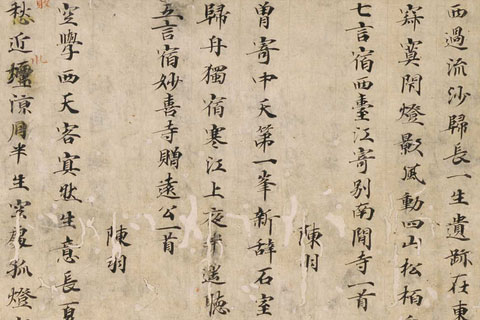 西過流沙歸長一生遺跡在東
寂寞閇燈影風動四山松柏
七言宿西臺江寄別南閒寺一首
陳羽
曽寄中天第一峯新辞石室
歸舟獨宿寒江上夜半遥聴
五言宿妙喜寺贈遠公一首
陳羽
空學西天客真牧生意長一夏
愁近檀涼月半生空夏孤燈